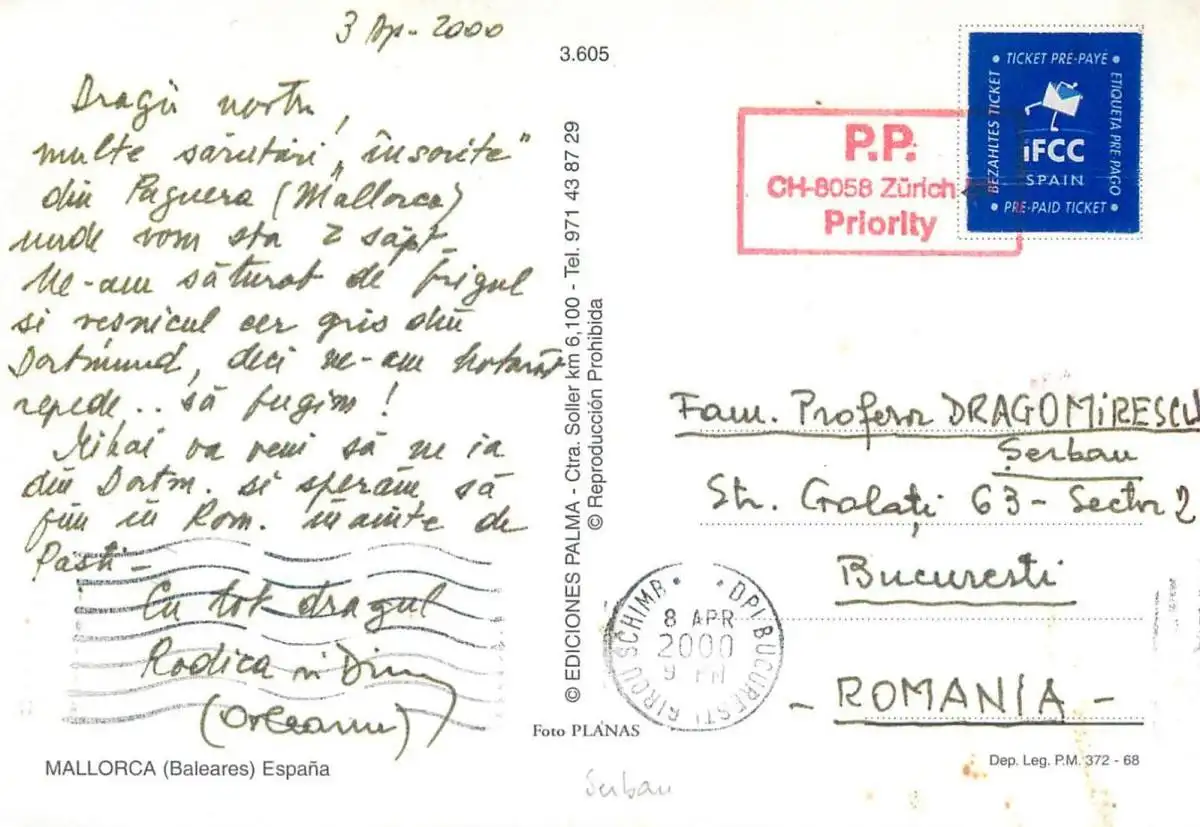 3 Ap. 2000
Dragii noștri,
multe sărutări „însorite”
din Paguera (Mallorca)
unde vom sta 2 săpt.
Ne-am săturat de frigul
si veșnicul cer gris din
Dortmund, deci ne-am hotarât
repede.. să fugim!
Mihai va veni să ne ia
din Dortm. si sperăm să
fim in Rom. inainte de
Pasti -
Cu tot dragul
Rodica si Dinu
(Orleanu)
MALLORCA (Baleares) España
3.605
© EDICIONES PALMA - Ctra. Soller km 6,100 - Tel. 971 43 87 29
© Reproducción Prohibida
Foto PLANAS
Serban
P.P.
CH-8058 Zürich
Priority
• TICKET PRE-PAYE •
BEZAHLTES TICKET
ETIQUETA PRE-PAGO
iFCC
SPAIN
• PRE-PAID TICKET •
Fam. Profesor DRAGOMiRESCU
Șerban
Str. Galați 63 - Sector 2
Bucuresti
- ROMANIA -
DPI BUCURESTI BIROU SCHIMB
8 APR
2000
Dep. Leg. P.M. 372 - 68